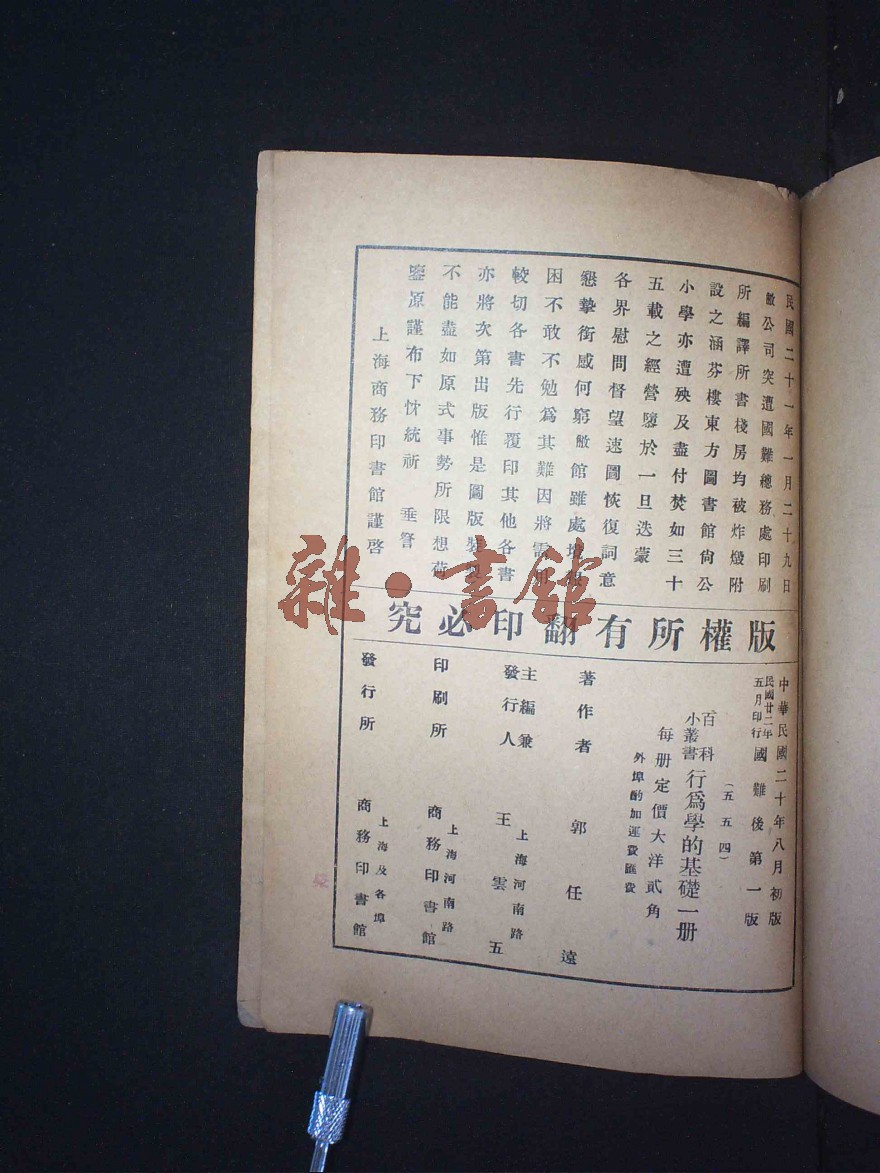 民國二十一年一月二十九日
敝公司突遭國難總務處印刷
所編譯所書棧房均被炸燬附
設之涵芬樓東方圖書館尙公
小學亦遭殃及盡付焚如三十
五載之經營隳於一旦迭蒙
各界慰問督望速圖恢復詞意
懇摯銜感何窮敝館雖處境
困不敢不勉爲其難因將需
較切各書先行覆印其他各書
亦將次第出版惟是圖版裝製
不能盡如原式事勢所限想荷
鑒原謹布下忱統祈 垂詧
上海商務印書館謹啓
版權所有翻印必究
中華民國二十年八月初版
民國廿二年五月印行國難後第一版
(五五四)
百科小叢書行爲學的基礎一册
每册定價大洋貳角
外埠酌加運費匯費
著作者 郭任遠
主編兼發行人 王雲五
上海河南路
印刷所 商務印書館
上海河南路
發行所 商務印書館
上海及各埠
雜·書館